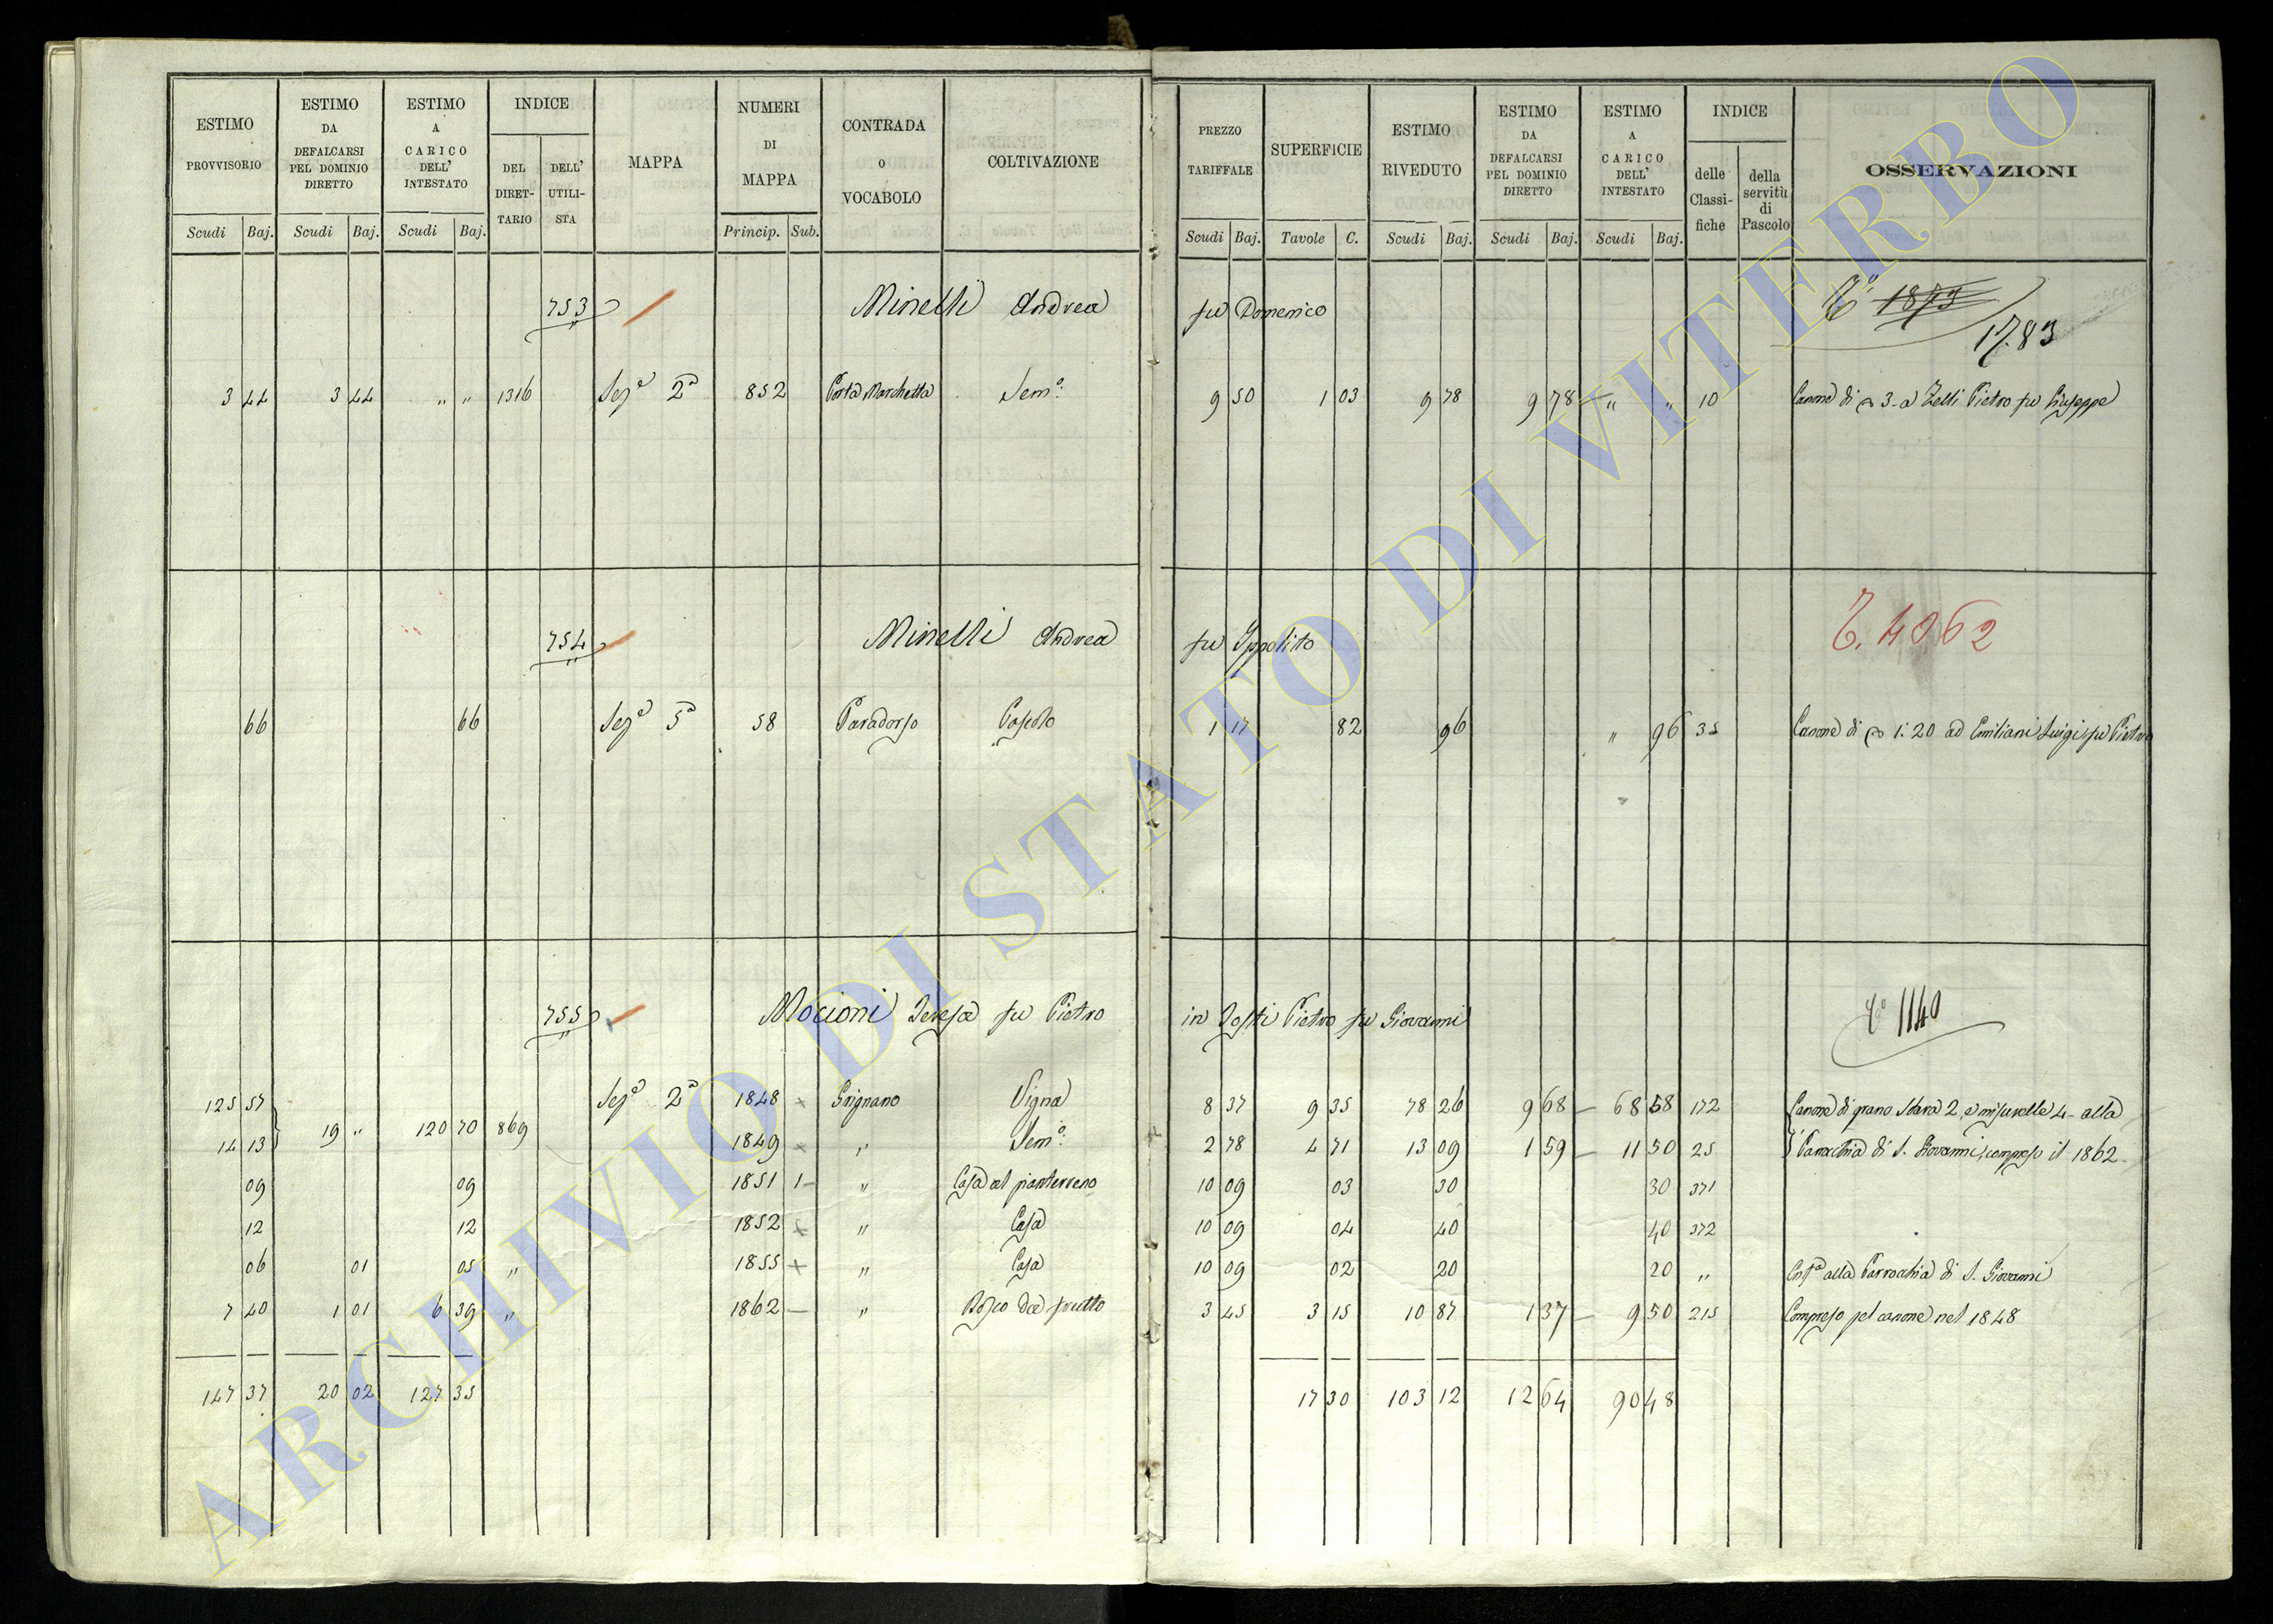 ESTIMO PROVVISORIO | ESTIMO DA DEFALCARSI PEL DOMINIO DIRETTO | ESTIMO A CARICO DELL' INTESTATO | INDICE | MAPPA | NUMERI DI MAPPA | CONTRADA O VOCABOLO | COLTIVAZIONE | PREZZO TARIFFALE | SUPERFICIE | ESTIMO RIVEDUTO | ESTIMO DA DEFALCARSI PEL DOMINIO DIRETTO | ESTIMO A CARICO DELL' INTESTATO | INDICE | OSSERVAZIONI
DEL DIRET-TARIO | DELL' UTILI-STA | delle Classi-fiche | della servitù di Pascolo
Scudi | Baj. | Scudi | Baj. | Scudi | Baj. | Princip. | Sub. | Scudi | Baj. | Tavole | C. | Scudi | Baj. | Scudi | Baj. | Scudi | Baj.
753 Minelli Andrea fu Domenico 1873
1783
3 44 3 44 " " 1316 Sez.e 2a 852 Porta Marchetta Sem.o 9 50 1 03 9 78 9 78 " " 10 Canone di 3 - a Zelli Pietro fu Giuseppe
754 Minelli Andrea fu Ippolito T. 4062
66 66 Sez.e 5a 58 Paradosso Pascolo 1 17 82 96 " 96 35 Canone di 1:20 ad Emiliani Luigi fu Pietro
755 Mocioni Teresa fu Pietro in Tosti Pietro fu Giovanni 1140
125 57 Sez.e 2a 1848 Grignano Vigna 8 37 9 35 78 26 9 68 68 58 172 Canone di grano Stara 2, e misurelle 4 - alla
14 13 19 " 120 70 869 1849 " Sem.o 2 78 4 71 13 09 1 59 11 50 25 Parrochia di S. Giovanni, compreso il 1862
09 09 1851 1 " Casa al pianterreno 10 09 03 30 30 371
12 12 1852 " Casa 10 09 04 40 40 372
06 01 05 " 1855 " Casa 10 09 02 20 20 " Enf.a alla Parrochia di S. Giovanni
7 40 1 01 6 39 " 1862 " Bosco da frutto 3 45 3 15 10 87 1 37 9 50 215 Compreso pel canone nel 1848
147 37 20 02 127 35 17 30 103 12 12 64 90 48
ARCHIVIO DI STATO DI VITERBO